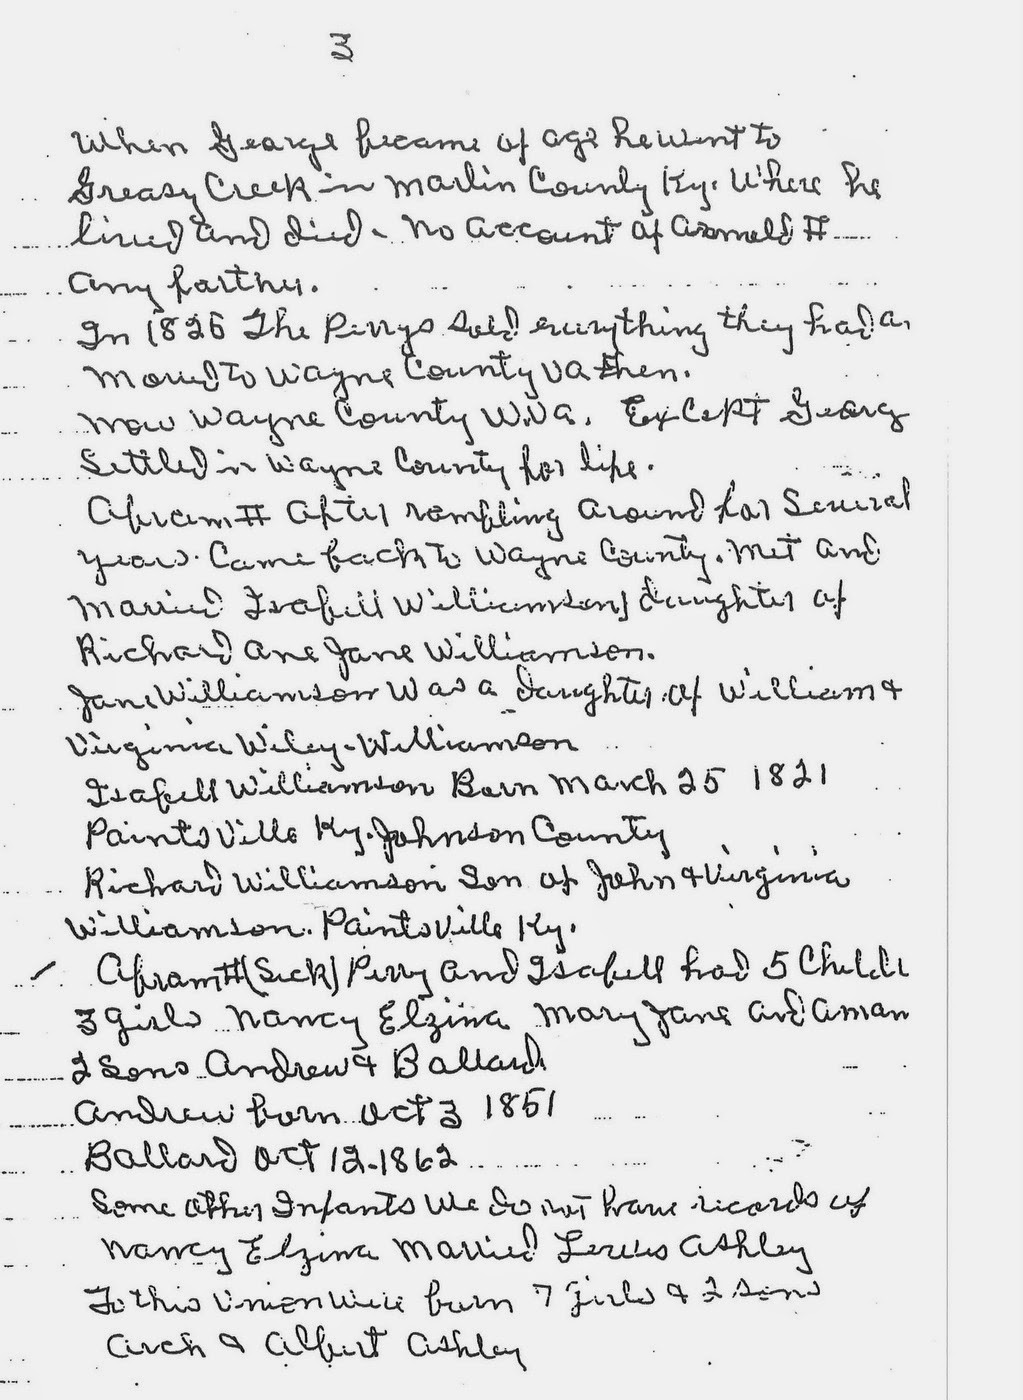 3
When George became of age he went to
Greasy Creek in Martin County Ky. Where he
lived and died - No account of Arnold II
any farther.
In 1826 The Perrys sold everything they had a
moved to Wayne County VA then.
now Wayne County W.Va. Except Georg
Settled in Wayne County for life.
Abram II after rambling around for several
years. Came back to Wayne County. Met and
Married Isabell Williamson, daughter of
Richard ane Jane Williamson.
Jane Williamson was a daughter of William &
Virginia Wiley-Williamson
Isabell Williamson Born March 25 1821
Paintsville Ky. Johnson County
Richard Williamson Son of John & Virginia
Williamson. Paintsville Ky.
Abram II (Sick) Perry and Isabell had 5 Child
3 girls Nancy Elzina Mary Jane and Aman
2 Sons Andrew & Ballard
Andrew born Oct 3 1851
Ballard Oct 12-1862
Some other Infants we do not have records of
Nancy Elzina Married Lewis Ashley
To this Union were born 7 girls & 2 sons
Arch & Albert Ashley